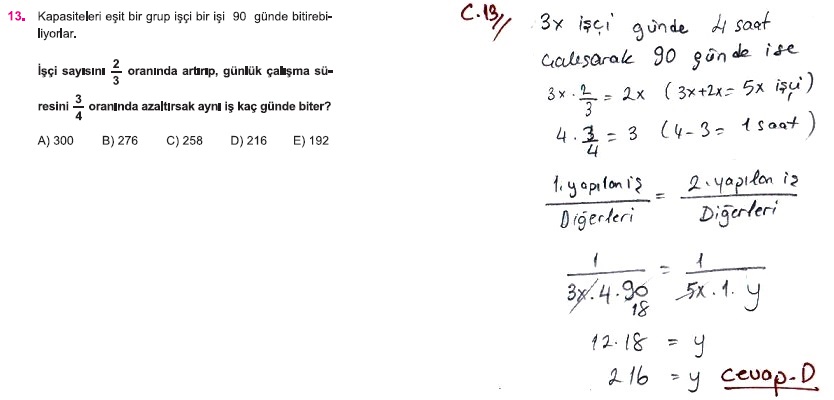 13. Kapasiteleri eşit bir grup işçi bir işi 90 günde bitirebi-
liyorlar.
İşçi sayısını 2/3 oranında artırıp, günlük çalışma sü-
resini 3/4 oranında azaltırsak aynı iş kaç günde biter?
A) 300 B) 276 C) 258 D) 216 E) 192
C.13//
3x işçi günde 4 saat
çalışarak 90 günde ise
3x · 2/3 = 2x (3x+2x = 5x işçi)
4 · 3/4 = 3 (4-3 = 1 saat)
1. yapılan iş / Diğerleri = 2. yapılan iş / Diğerleri
1 / 3x · 4 · 90 = 1 / 5x · 1 · y
18
12 · 18 = y
216 = y Cevap-D